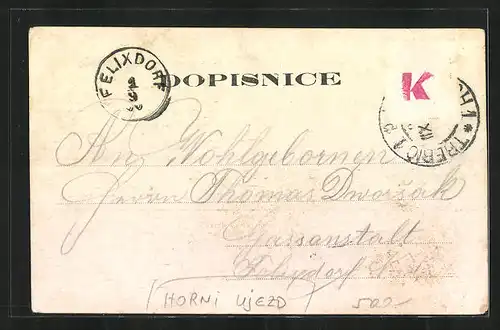 FELIXDORF
DOPISNICE
K
TREBIC 1
An Wohlgebornen
Herrn Thomas Dworšak
Gasanstalt
Felixdorf
HORNI UJEZD 500-